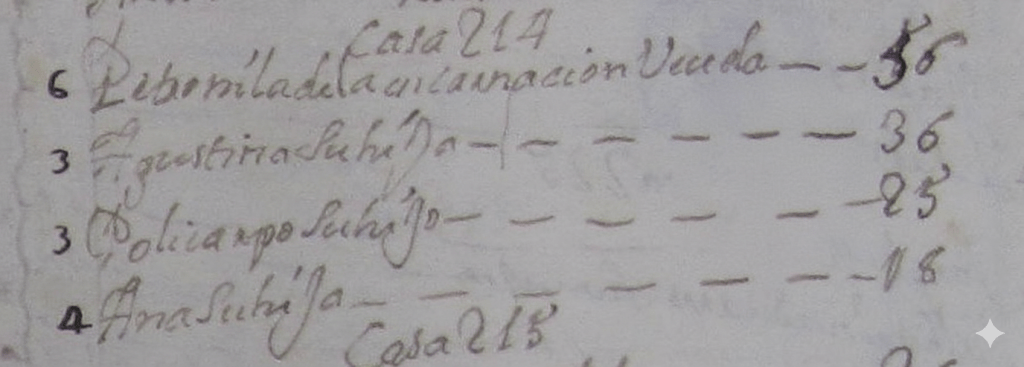 Casa 214
6 Petronila de la encarnacion Viueda - - 56
3 Agustina su hija - - - - - - 36
3 Policarpo su hijo - - - - - - 25
4 Ana su hija - - - - - - - 18
Casa 215